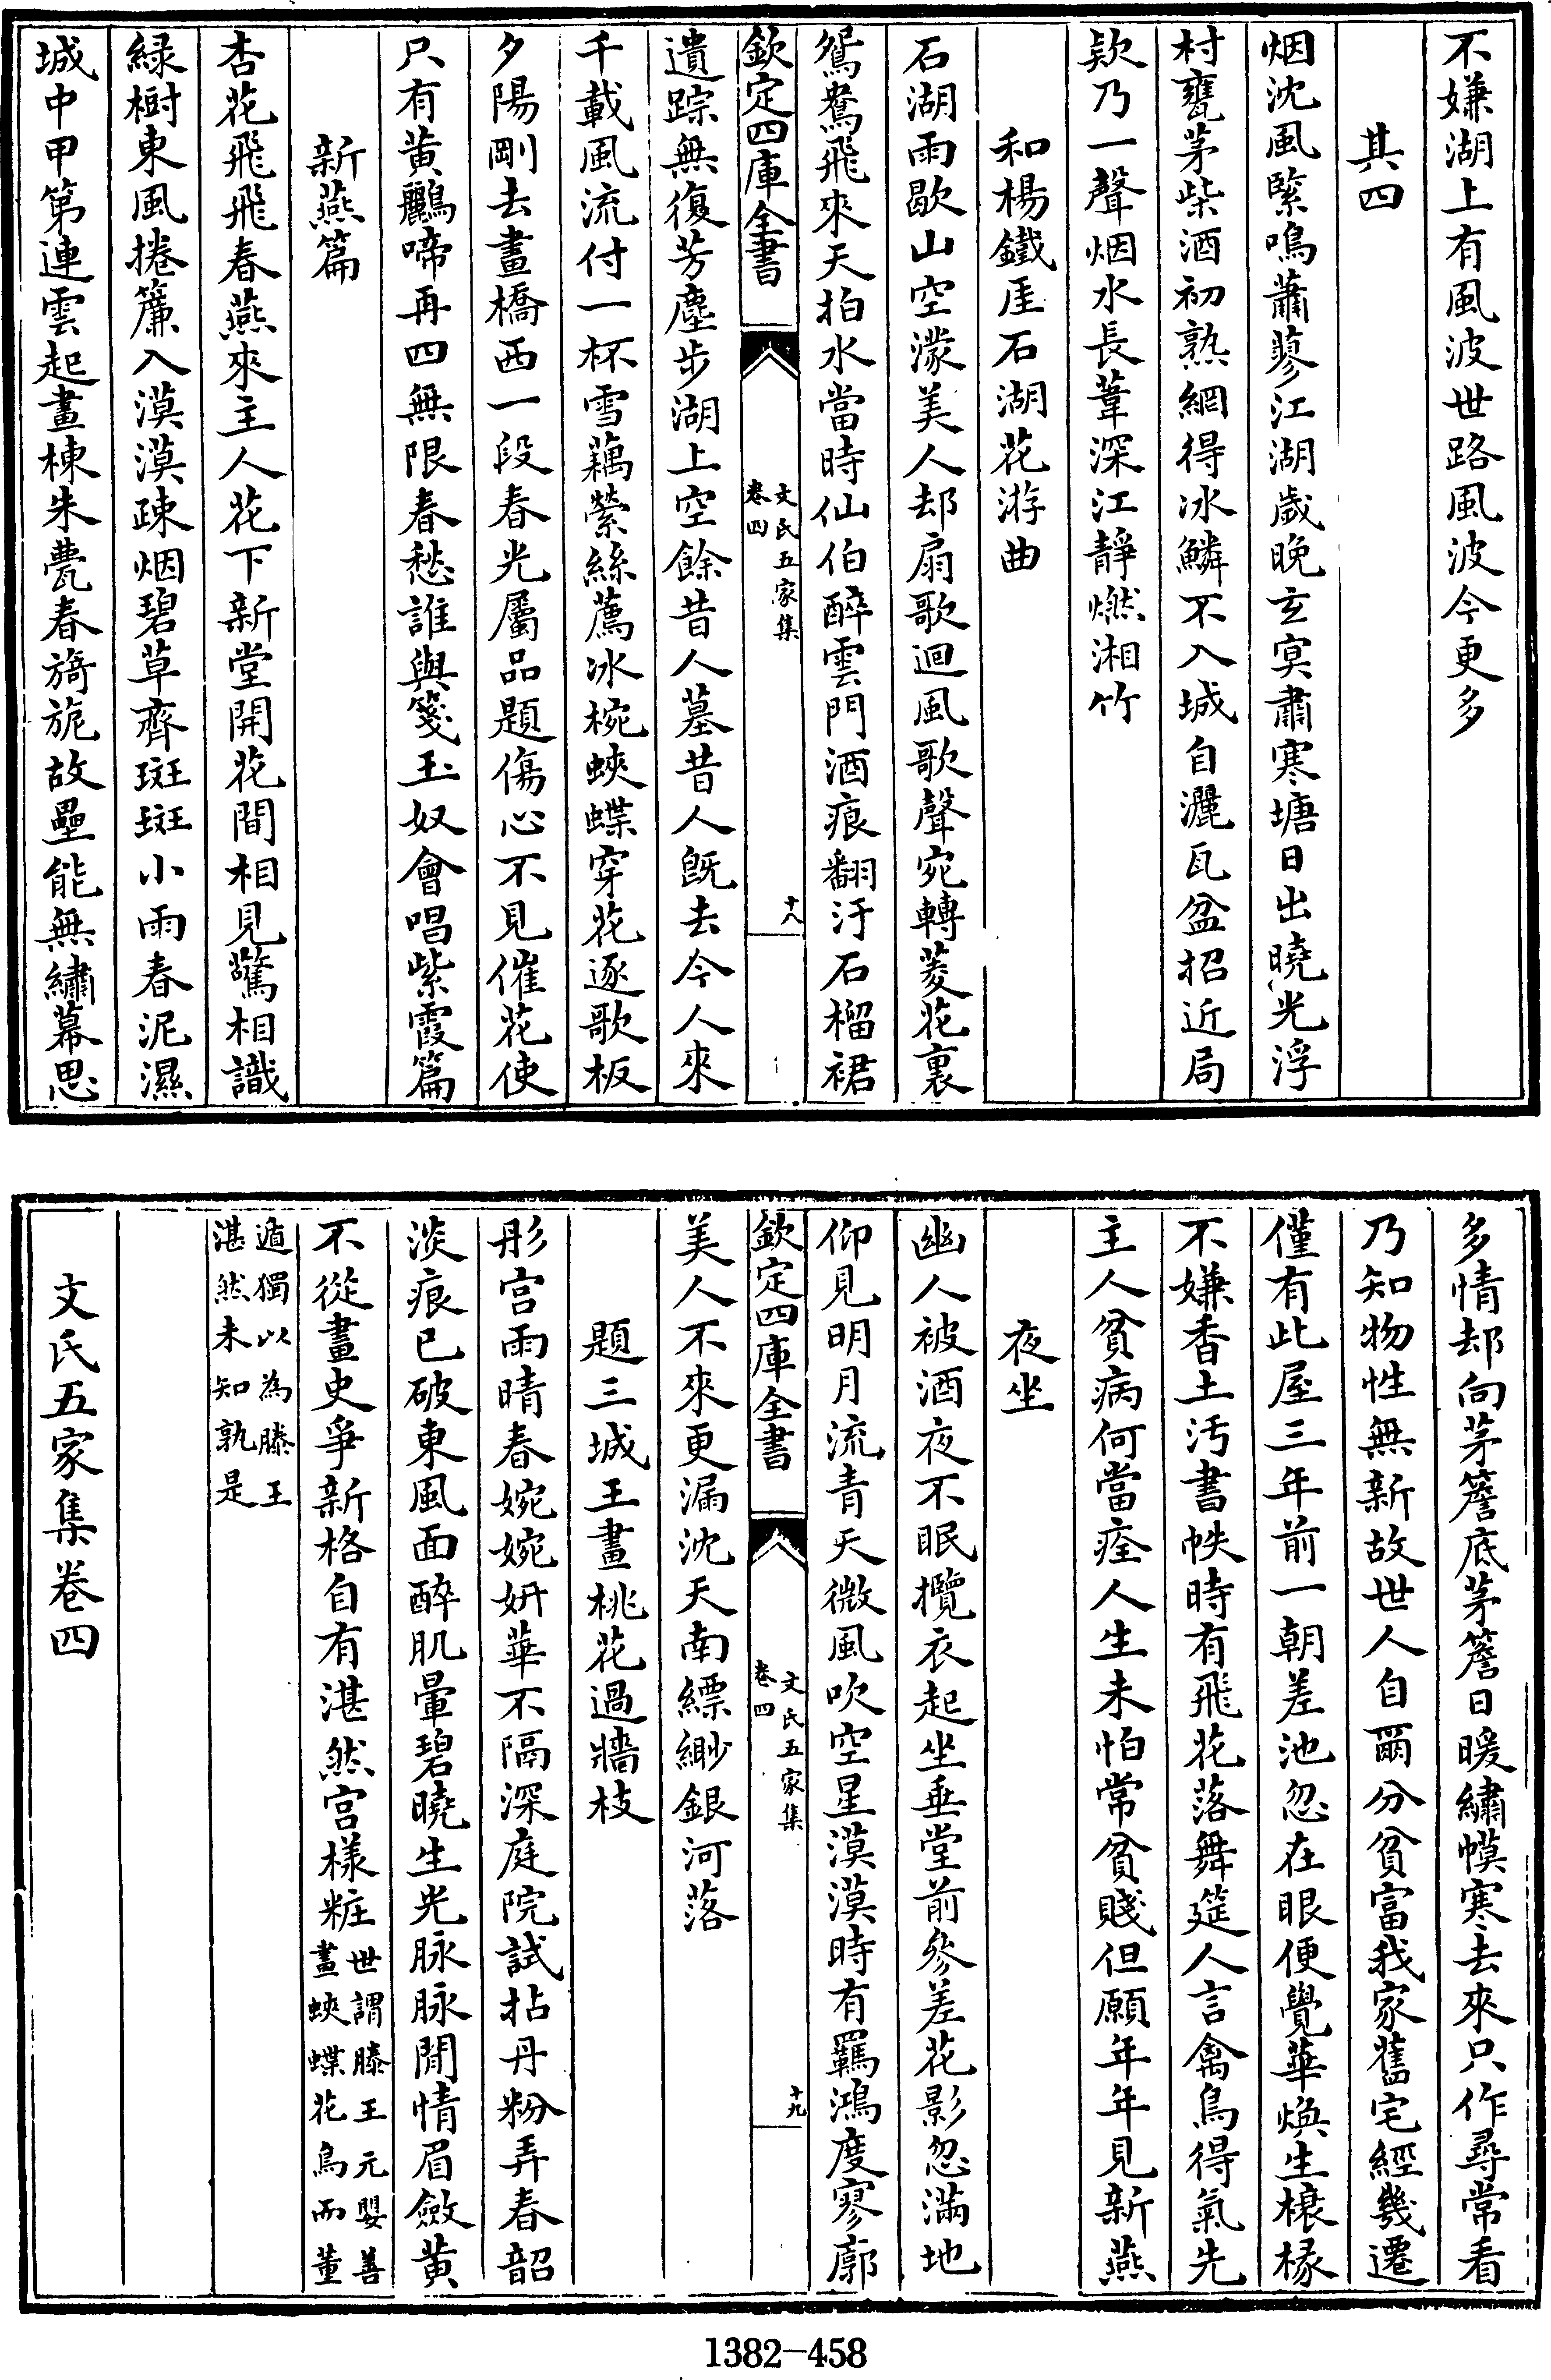 不嫌湖上有風波世路風波今更多
其四
烟沈風緊鳴蕭蓼江湖歲晚玄冥肅寒塘日出曉光浮
村甕茅柴酒初熟網得冰鱗不入城自灑瓦盆招近局
欵乃一聲烟水長葦深江靜燃湘竹
和楊鐵厓石湖花游曲
石湖雨歇山空濛美人却扇歌迴風歌聲宛轉菱花裏
鴛鴦飛來天拍水當時仙伯醉雲門酒痕翻汙石榴裙
欽定四庫全書
文氏五家集
卷四
十八
遺踪無復芳塵步湖上空餘昔人墓昔人既去今人來
千載風流付一杯雪藕縈絲薦冰椀蛺蝶穿花逐歌板
夕陽剛去畫橋西一段春光屬品題傷心不見催花使
只有黄鸝啼再四無限春愁誰與箋玉奴會唱紫霞篇
新燕篇
杏花飛飛春燕來主人花下新堂開花間相見驚相識
綠樹東風捲簾入漠漠疎烟碧草齊斑斑小雨春泥濕
城中甲第連雲起畫棟朱甍春旖旎故壘能無繡幕思
多情却向茅簷底茅簷日暖繡幙寒去來只作尋常看
乃知物性無新故世人自爾分貧富我家舊宅經幾遷
僅有此屋三年前一朝差池忽在眼便覺華煥生榱椽
不嫌香土汚書帙時有飛花落舞筵人言禽鳥得氣先
主人貧病何當痊人生未怕常貧賤但願年年見新燕
夜坐
幽人被酒夜不眠攬衣起坐垂堂前參差花影忽滿地
仰見明月流青天微風吹空星漠漠時有羈鴻度寥廓
欽定四庫全書
文氏五家集
卷四
十九
美人不來更漏沈天南縹緲銀河落
題三城王畫桃花過牆枝
彤宫雨晴春婉婉妍華不隔深庭院試拈丹粉弄春韶
淡痕已破東風面醉肌暈碧曉生光脉脉閒情眉斂黄
不從畫史爭新格自有湛然宫樣粧世謂滕王元嬰善
畫蛺蝶花鳥而董
逌獨以為滕王
湛然未知孰是
文氏五家集卷四
1382-458